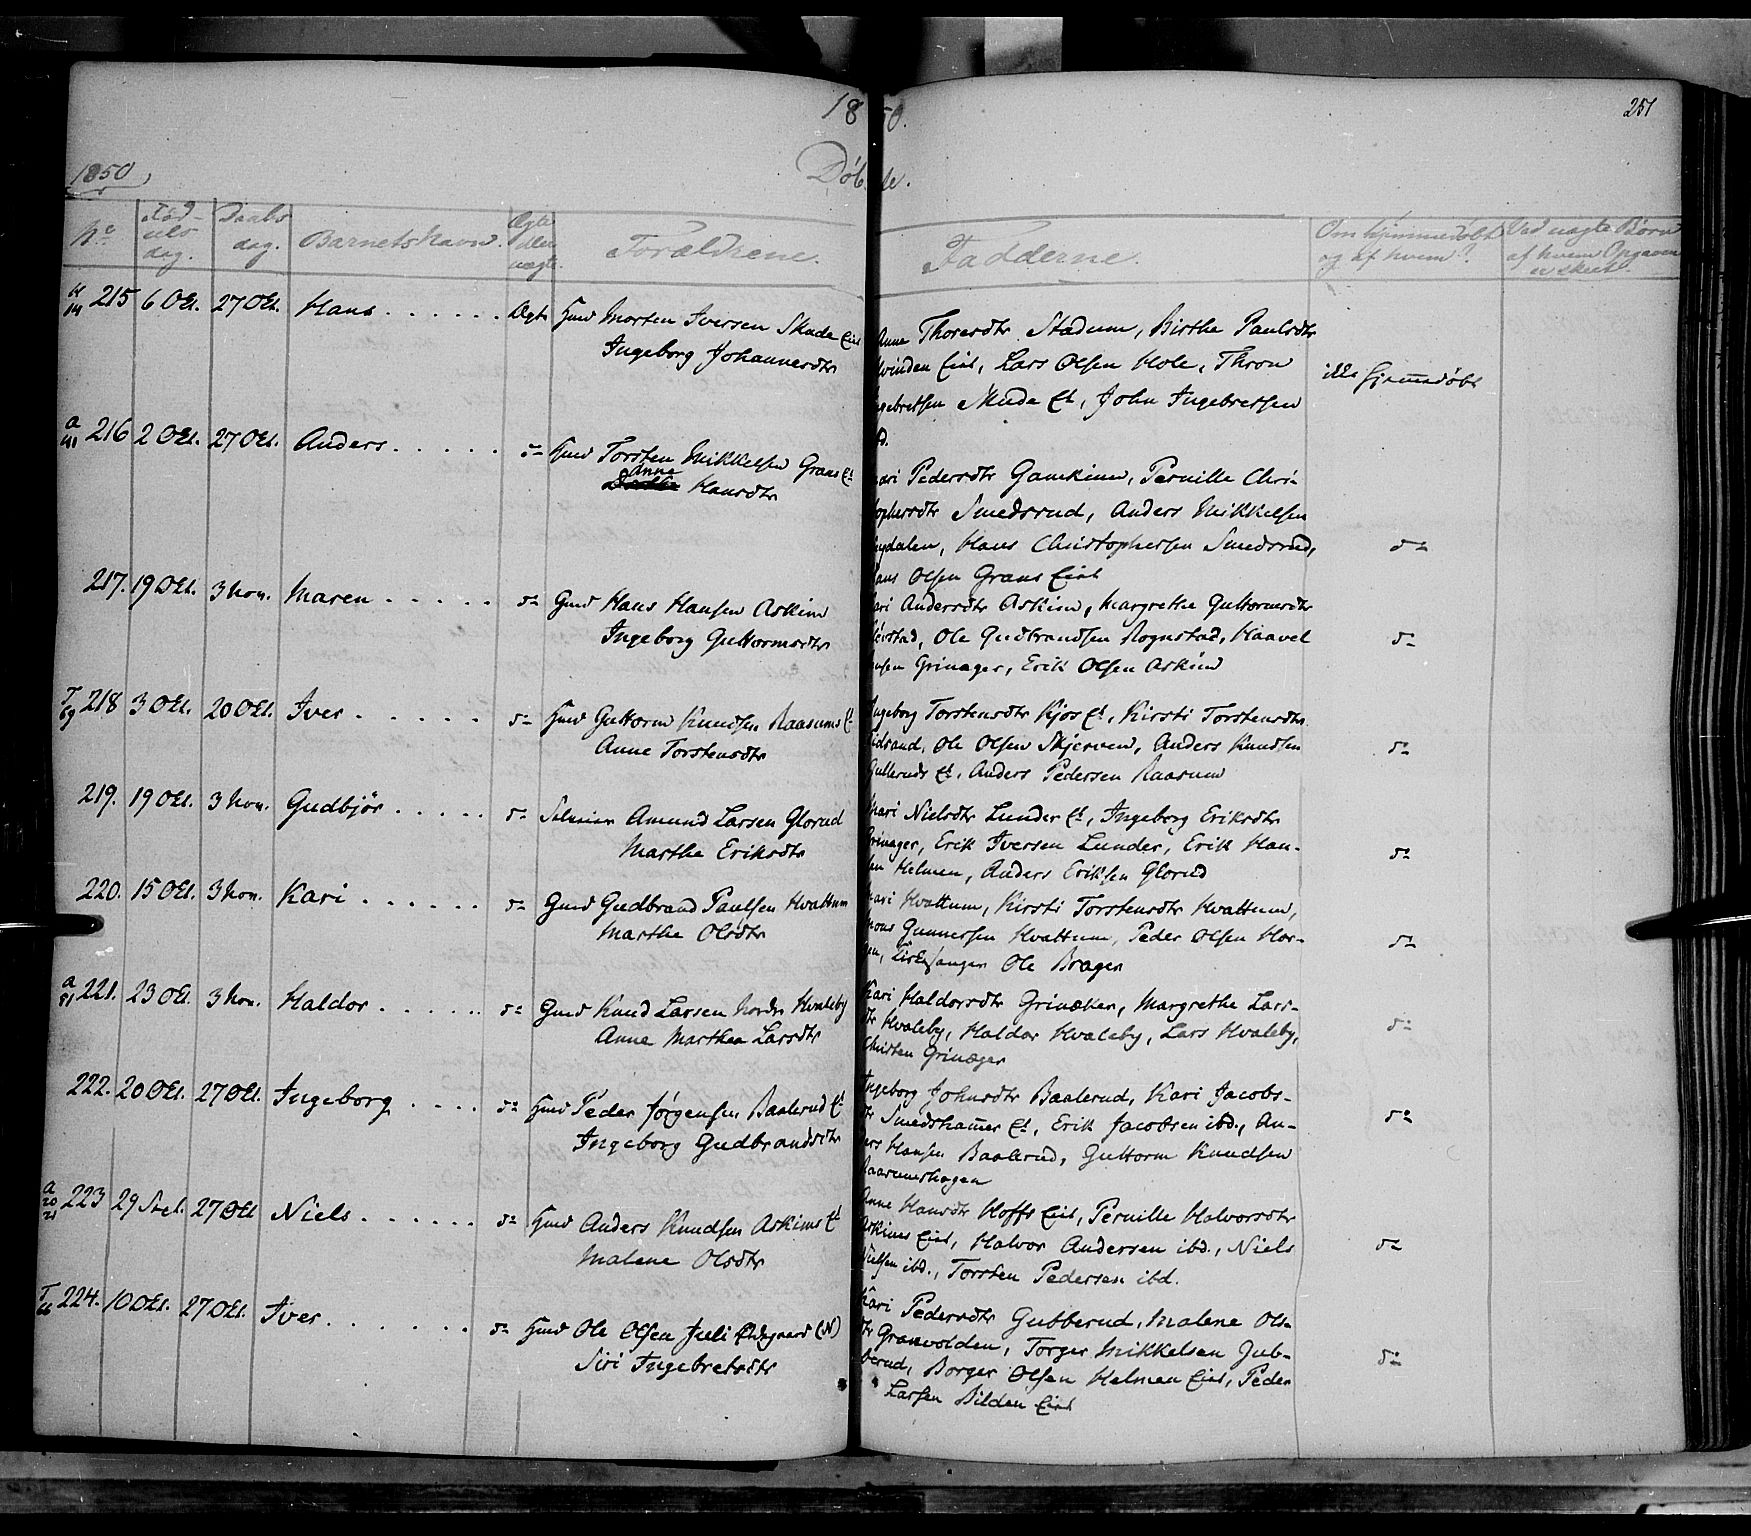 1850.
251
1850,
Døbte.
No
Fød-
sels
dag.
Daabs
dag.
Barnets Navn.
Ægte
eller
uægte.
Forældrene.
Fadderne.
Om hjemmedøbt
og af hvem?
Ved uægte Børn
af hvem Opgaven
er skeet.
215 6 Oct. 27 Oct. Hans Ægte Hmd Morten Iversen Skude Eiet
Ingeborg Johannesdtr
Anne Thoresdtr Stadum, Birthe Paulsdtr
Hvinden Eiet, Lars Olsen Hole, Thron
Ingebretsen Skude Et, John Ingebretsen
ibd.
ikke hjemmedøbt
216 2 Oct. 27 Oct. Anders do Hmd Torsten Mikkelsen Grans Et
Anne Hansdtr
Kari Pedersdtr Gamkinn, Pernille Chri-
stophersdtr Smedsrud, Anders Mikkelsen
Hans Christophersen Smedsrud,
Hans Olsen Grans Eiet
do
217. 19 Oct. 3 Nov. Maren do Gmd Hans Hansen Askim
Ingeborg Guttormsdtr
Kari Andersdtr Askim, Margrethe Guttormsdtr
Ole Gudbrandsen Rognstad, Haavel
Hansen Grinager, Erik Olsen Askim
do
218 3 Oct. 20 Oct. Iver do Hmd Guttorm Knudsen Raasums Et
Anne Torstensdtr
Ingeborg Torstensdtr Kjos Et, Kirsti Torstensdtr
Ole Olsen Skjerven, Anders Knudsen
Gulleruds Et. Anders Pedersen Raasum
do
219. 19 Oct. 3 Nov. Gudbjør do Selveier Amund Larsen Glorud
Marthe Eriksdtr
Mari Nielsdtr Lunder Et, Ingeborg Eriksdtr
Grinager, Erik Iversen Lunder, Erik Han-
sen Helmen, Anders Eriksen Glorud
do
220. 15 Oct. 3 Nov. Kari do Gmd Gudbrand Paulsen Hvattum
Marthe Olsdtr
Mari Hvattum, Kirsti Torstensdtr Hvattum,
Mons Gunnersen Hvattum, Peder Olsen Hor-
gen, Kirkesanger Ole Brager
do
221. 23 Oct. 3 Nov. Haldor do Gmd Knud Larsen Nordre Hvaleby
Anne Marthea Larsdtr
Kari Haldorsdtr Grinaker, Margrethe Lars-
dtr Hvaleby, Haldor Hvaleby, Lars Hvaleby,
Christen Grinager
do
222. 20 Oct. 27 Oct. Ingeborg do Hmd Peder Jørgensen Baalerud Et
Ingeborg Gudbrandsdtr
Ingeborg Johnsdtr Baalerud, Kari Jacobs-
dtr Smedshammer Et, Erik Jacobsen ibd., An-
ders Hansen Baalerud, Guttorm Knudsen
Raasumshagen
do
223 29 Sept. 27 Oct Niels do Hmd Anders Knudsen Askims Et
Malene Olsdtr
Anne Hansdtr Hoffs Eiet, Pernille Halvorsdtr
Askims Eiet, Halvor Andersen ibd., Niels
Nielsen ibd., Torsten Pedersen ibd.
do
224. 10 Oct. 27 Oct. Iver do Hmd Ole Olsen Juli Ødegaard (N)
Siri Ingebretsdtr
Kari Pedersdtr Gubberud, Malene Ols-
dtr Granvolden, Torger Mikkelsen Gub-
berud, Borger Olsen Helmen Eiet, Peder
Larsen Bilden Eiet
do